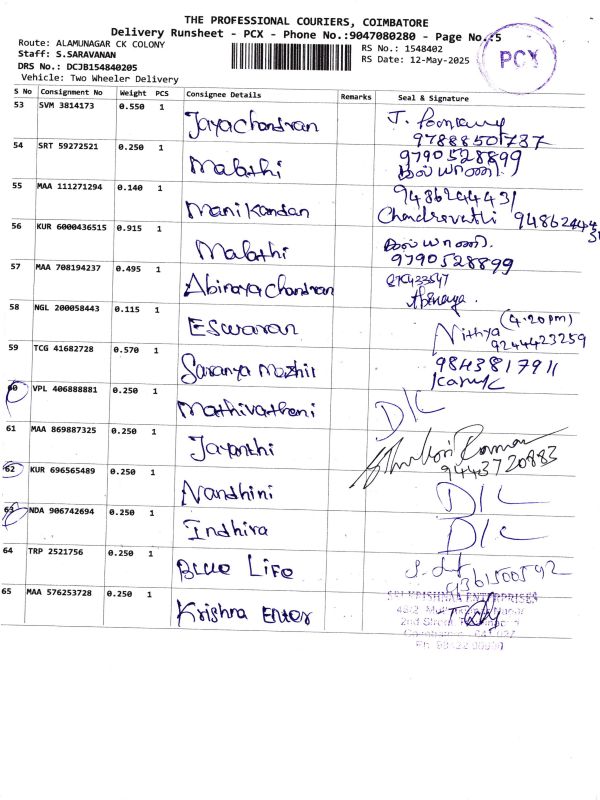 THE PROFESSIONAL COURIERS, COIMBATORE
Delivery Runsheet - PCX - Phone No.:9047080280 - Page No.:5
Route: ALAMUNAGAR CK COLONY
Staff: S.SARAVANAN
DRS No.: DCJB154840205
Vehicle: Two Wheeler Delivery
RS No.: 1548402
RS Date: 12-May-2025
PCX
S No Consignment No Weight PCS Consignee Details Remarks Seal & Signature
53 SVM 3814173 0.550 1 Jayachandran J.
97888501737
54 SRT 59272521 0.250 1 Malathi 9790528899
கல்யாணி.
55 MAA 111271294 0.140 1 Manikandan 9486244431
Chandravathi 9486244431
56 KUR 6000436515 0.915 1 Malathi கல்யாணி.
9790528899
57 MAA 708194237 0.495 1 Abinaya Chandran
Abinaya.
58 NGL 200058443 0.115 1 Eswaran Nithya (4.20pm)
9244423259
59 TCG 41682728 0.570 1 Saranya Mozhil 9843817911
60 VPL 406888881 0.250 1 Mathivatheni D/C
61 MAA 869887325 0.250 1 Jayanthi
9443720883
62 KUR 696565489 0.250 1 Nandhini D/C
63 NDA 906742694 0.250 1 Indhira D/C
64 TRP 2521756 0.250 1 Blue Life
65 MAA 576253728 0.250 1 Krishna Enter
SRI KRISHNAA ENTERPRISES
2nd Street,
Coimbatore - 641 027